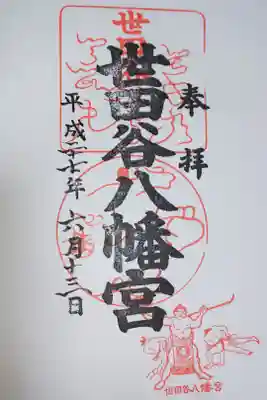 奉拝
世田谷八幡宮
平成二十七年 六月十三日
世田
世田谷八幡宮